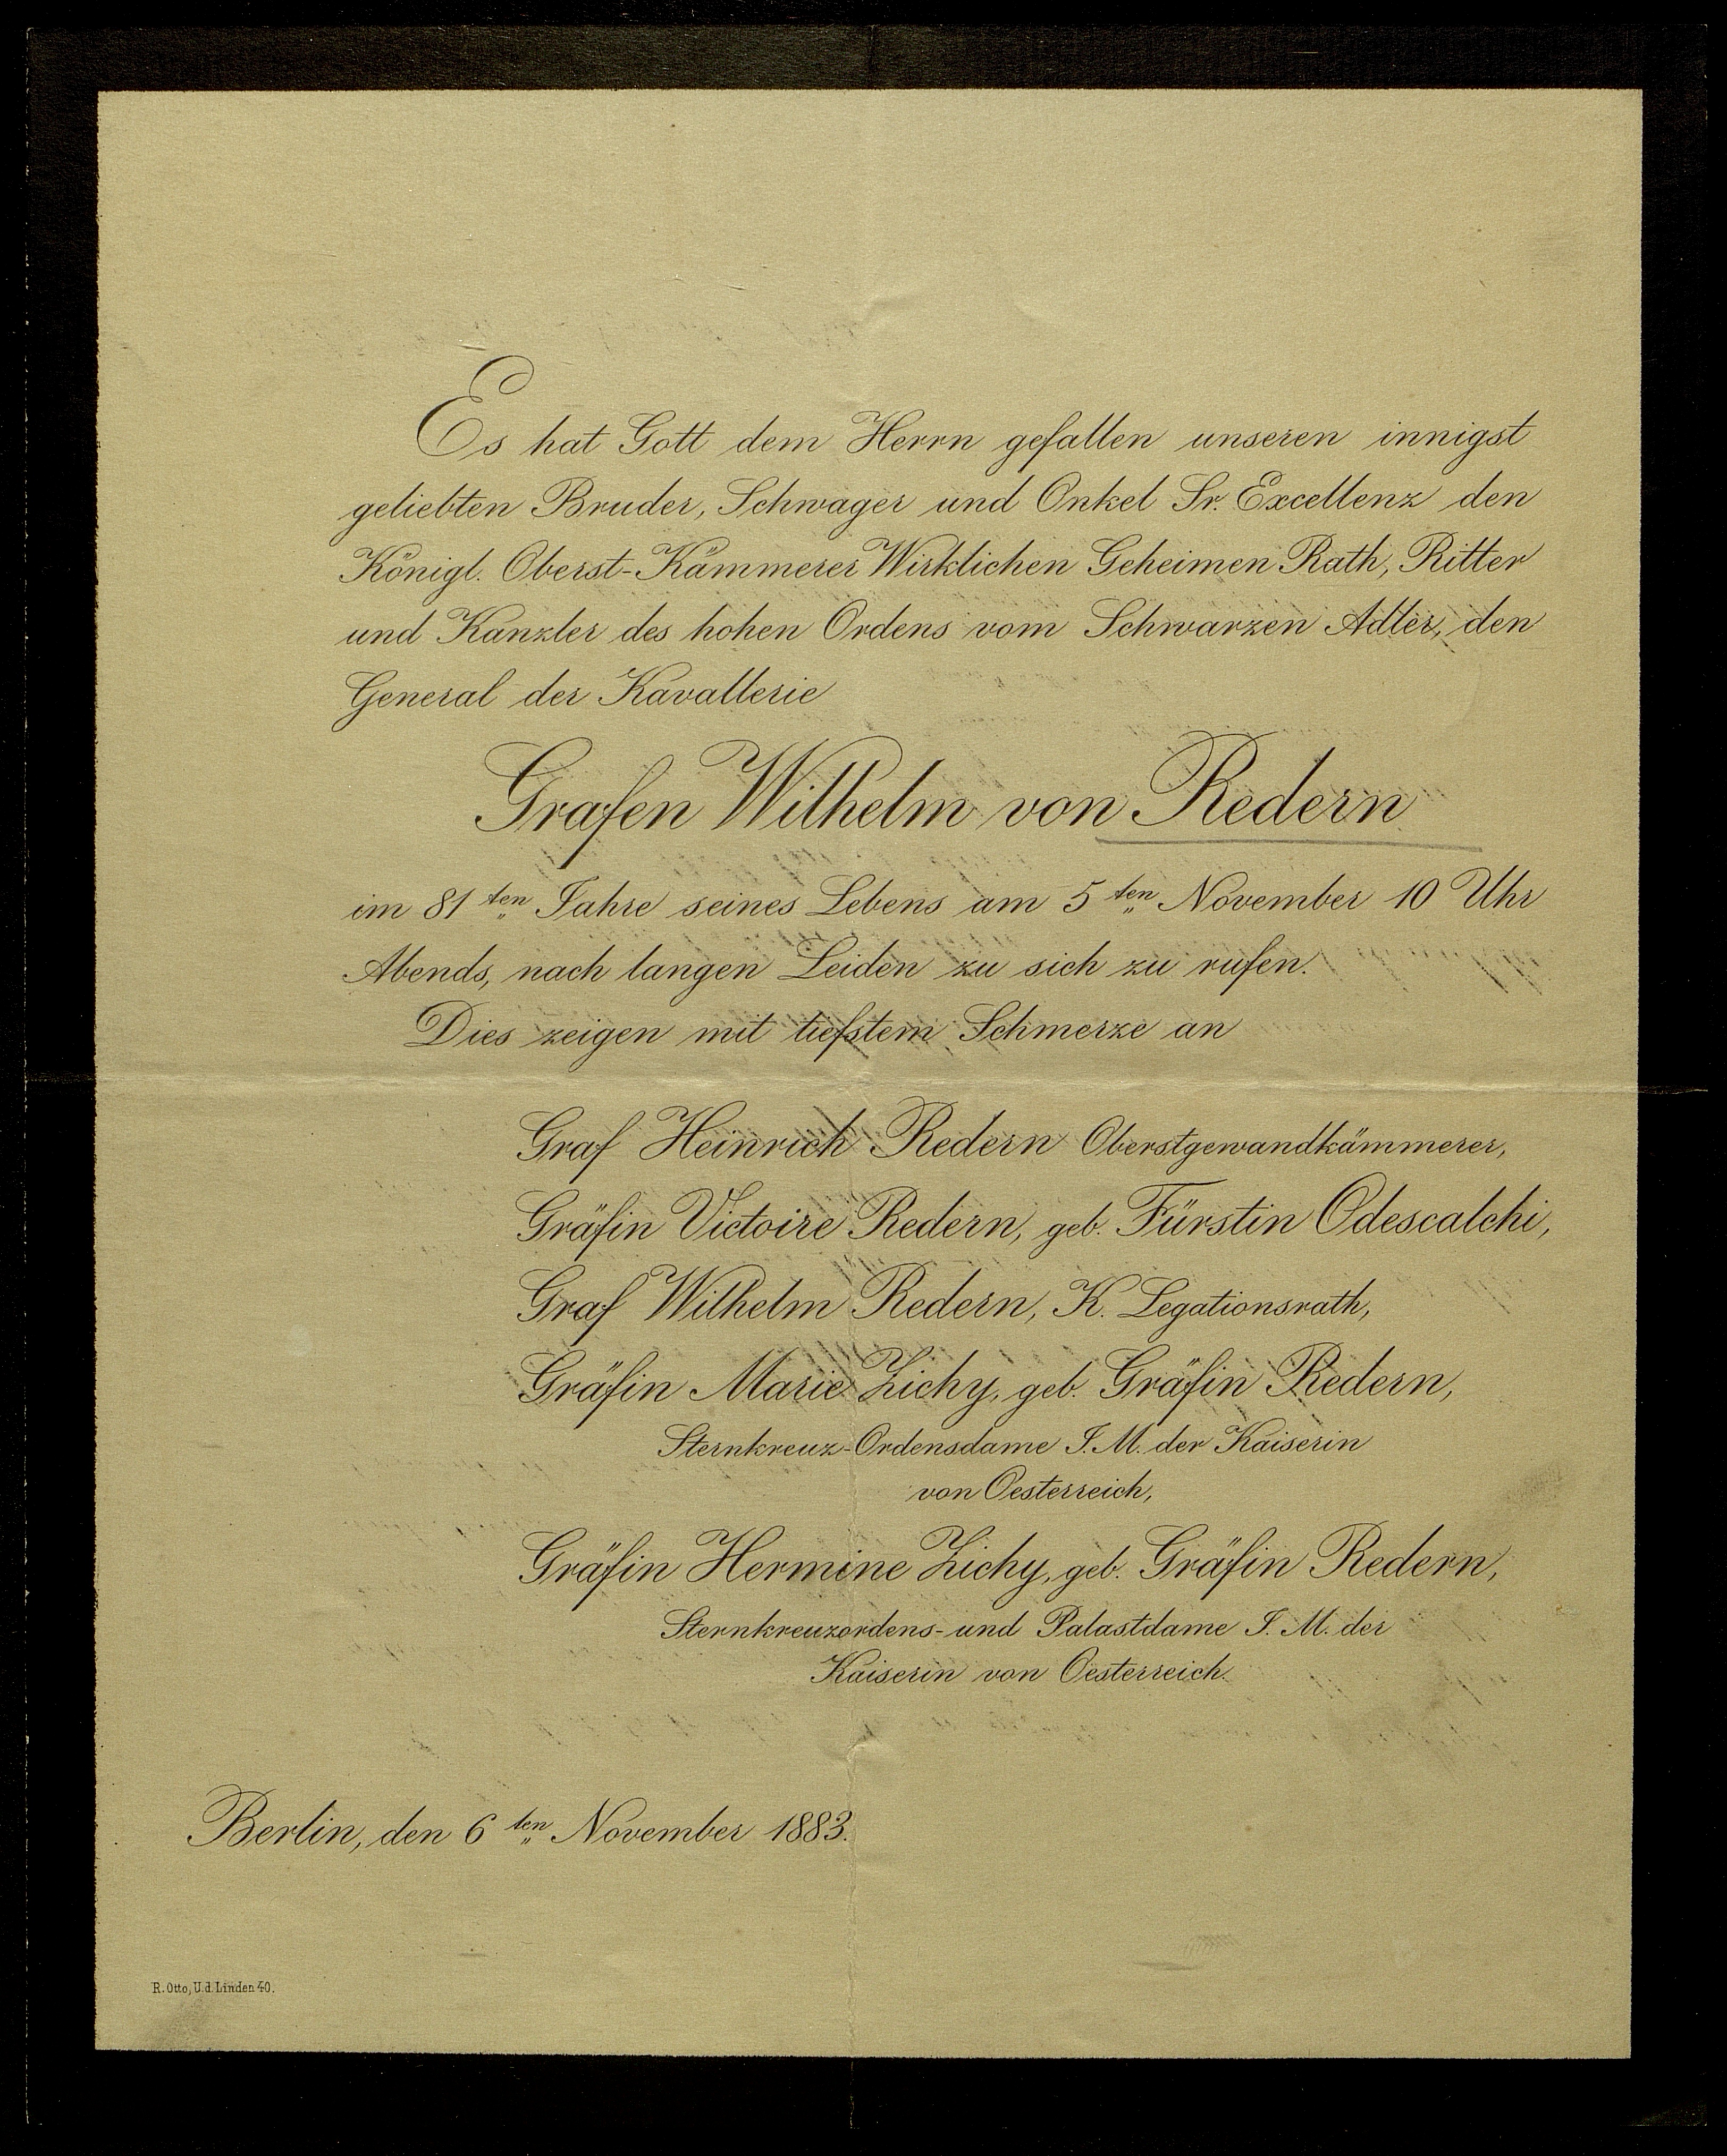 Es hat Gott dem Herrn gefallen unseren innigst
geliebten Bruder, Schwager und Onkel Sr. Excellenz den
Königl. Oberst-Kämmerer Wirklichen Geheimen Rath, Ritter
und Kanzler des hohen Ordens vom Schwarzen Adler, den
General der Kavallerie
Grafen Wilhelm von Redern
im 81ten Jahre seines Lebens am 5ten November 10 Uhr
Abends, nach langen Leiden zu sich zu rufen.
Dies zeigen mit tiefstem Schmerze an
Graf Heinrich Redern Oberstgewandkämmerer,
Gräfin Victoire Redern, geb. Fürstin Odescalchi,
Graf Wilhelm Redern, K. Legationsrath,
Gräfin Marie Zichy, geb. Gräfin Redern,
Sternkreuz-Ordensdame I. M. der Kaiserin
von Oesterreich,
Gräfin Hermine Zichy, geb. Gräfin Redern,
Sternkreuzordens- und Palastdame I. M. der
Kaiserin von Oesterreich.
Berlin, den 6ten November 1883.
R. Otto, U.d. Linden 40.